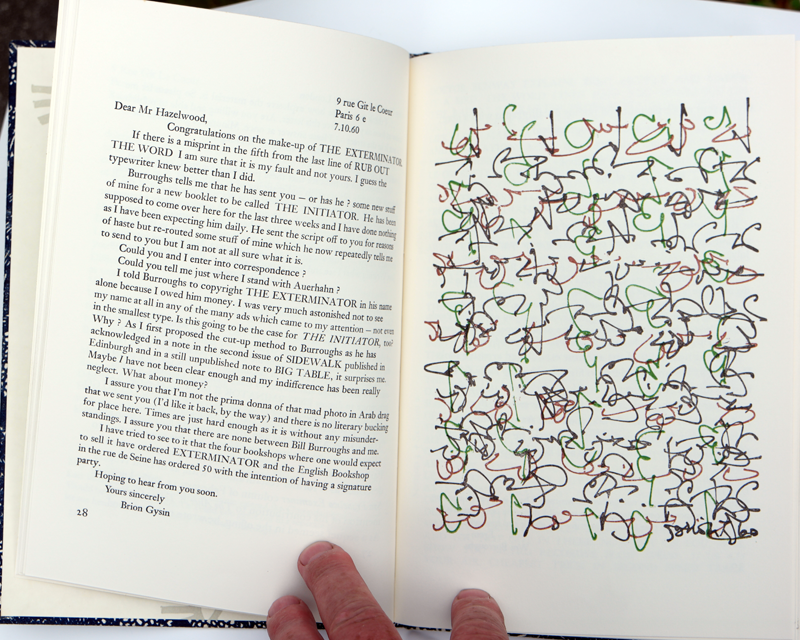 9 rue Git le Coeur
Paris 6 e
7.10.60
Dear Mr Hazelwood,
Congratulations on the make-up of THE EXTERMINATOR
If there is a misprint in the fifth from the last line of RUB OUT
THE WORD I am sure that it is my fault and not yours. I guess the
typewriter knew better than I did.
Burroughs tells me that he has sent you – or has he ? some new stuff
of mine for a new booklet to be called THE INITIATOR. He has been
supposed to come over here for the last three weeks and I have done nothing
as I have been expecting him daily. He sent the script off to you for reasons
of haste but re-routed some stuff of mine which he now repeatedly tells me
to send to you but I am not at all sure what it is.
Could you and I enter into correspondence ?
Could you tell me just where I stand with Auerhahn ?
I told Burroughs to copyright THE EXTERMINATOR in his name
alone because I owed him money. I was very much astonished not to see
my name at all in any of the many ads which came to my attention – not even
in the smallest type. Is this going to be the case for THE INITIATOR, too?
Why ? As I first proposed the cut-up method to Burroughs as he has
acknowledged in a note in the second issue of SIDEWALK published in
Edinburgh and in a still unpublished note to BIG TABLE, it surprises me.
Maybe I have not been clear enough and my indifference has been really
neglect. What about money?
I assure you that I'm not the prima donna of that mad photo in Arab drag
that we sent you (I'd like it back, by the way) and there is no literary bucking
for place here. Times are just hard enough as it is without any misunder-
standings. I assure you that there are none between Bill Burroughs and me.
I have tried to see to it that the four bookshops where one would expect
to sell it have ordered EXTERMINATOR and the English Bookshop
in the rue de Seine has ordered 50 with the intention of having a signature
party.
Hoping to hear from you soon.
Yours sincerely
Brion Gysin
28